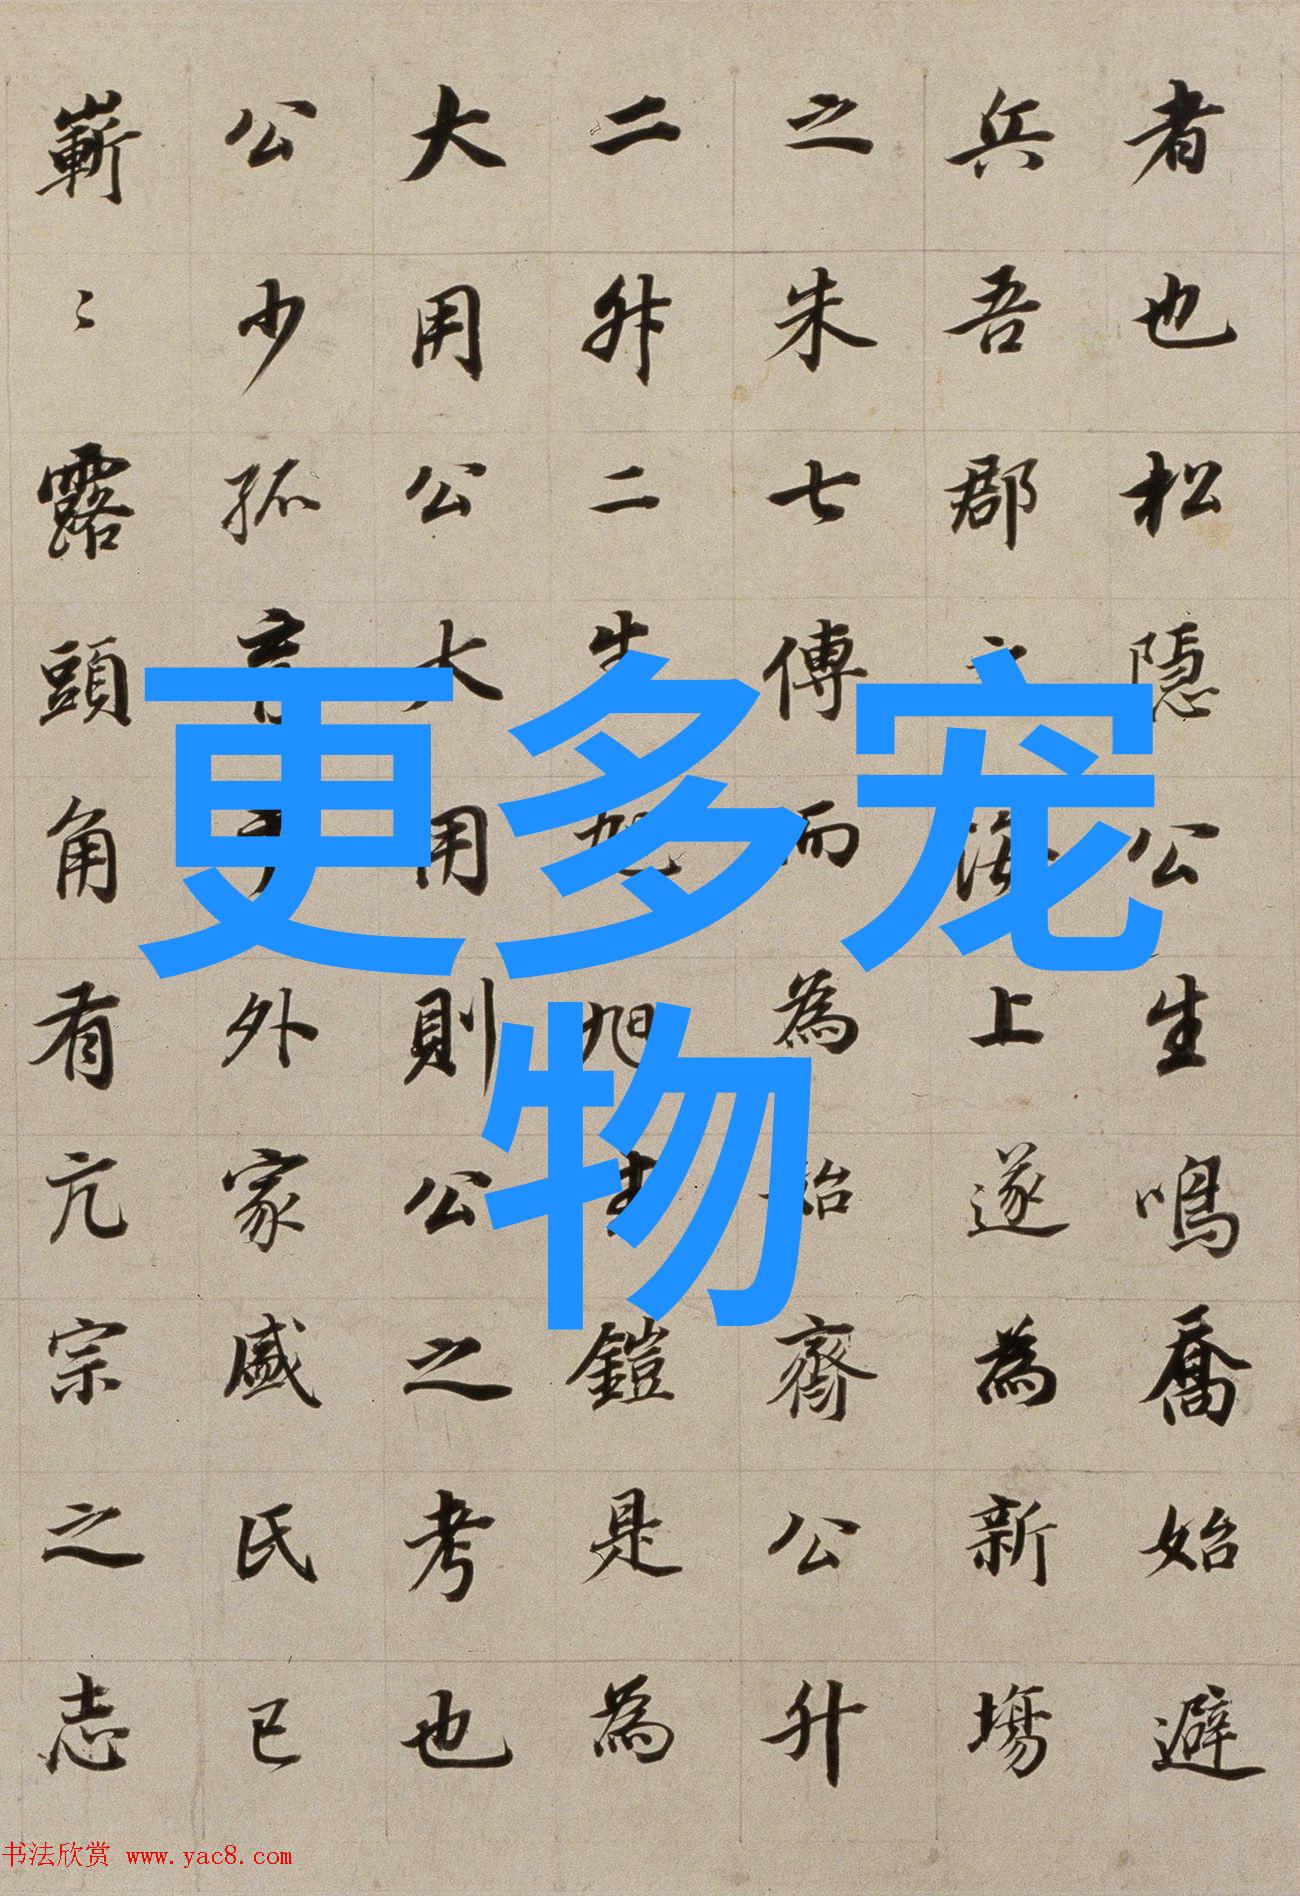 者也松隐公生鳴喬始避
兵吾郡之海上遂為新場
之朱七傅而為始齊公升
二升二生旭旭生鎧是為
大用公大用則公之考也
公少孤育于外家盛氏已
嶄〻露頭角有亢宗之志
更多宠
物
书法欣赏 www.yac8.com